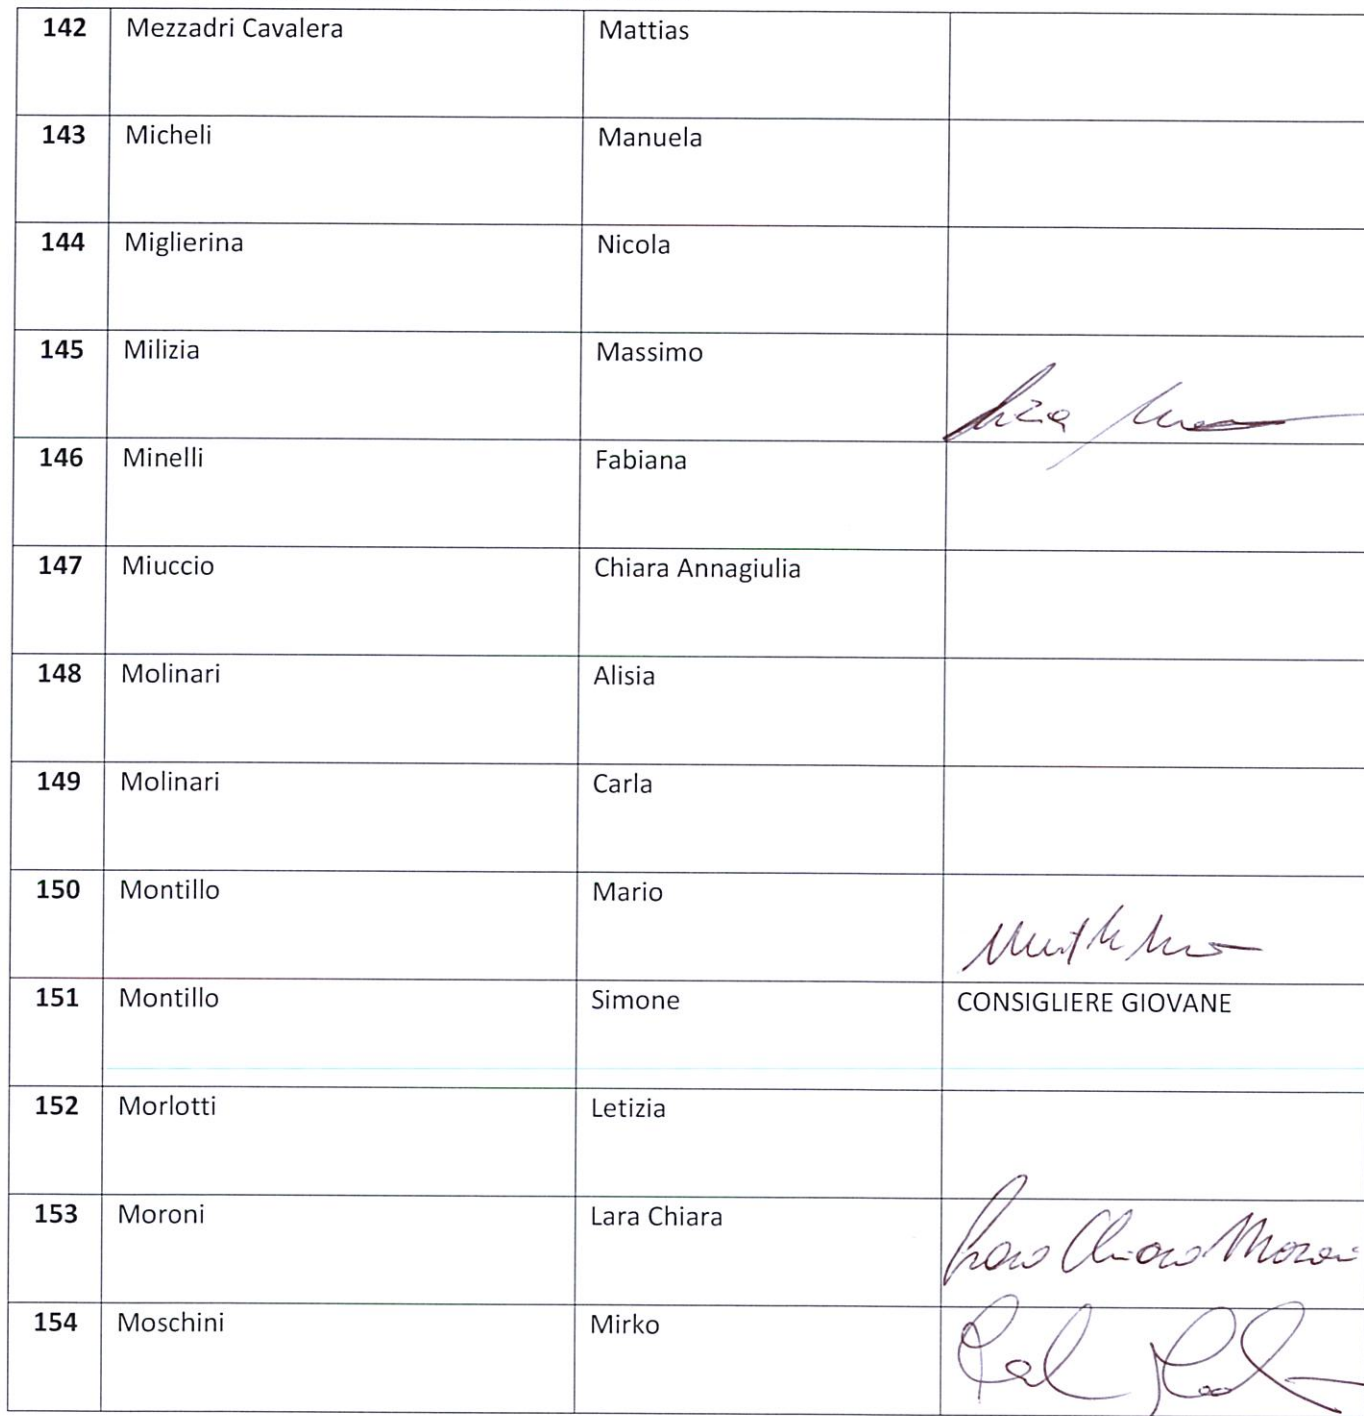 142 Mezzadri Cavalera Mattias
143 Micheli Manuela
144 Miglierina Nicola
145 Milizia Massimo
146 Minelli Fabiana
147 Miuccio Chiara Annagiulia
148 Molinari Alisia
149 Molinari Carla
150 Montillo Mario
151 Montillo Simone CONSIGLIERE GIOVANE
152 Morlotti Letizia
153 Moroni Lara Chiara Lara Chiara Moroni
154 Moschini Mirko